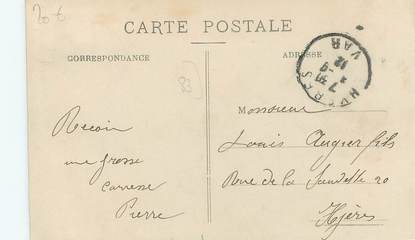 20 €
CARTE POSTALE
CORRESPONDANCE
ADRESSE
HYERES
VAR
83
Monsieur
Louis Augier fils
Rue de la 20
Hyères
Reçois
une grosse
caresse
Pierre